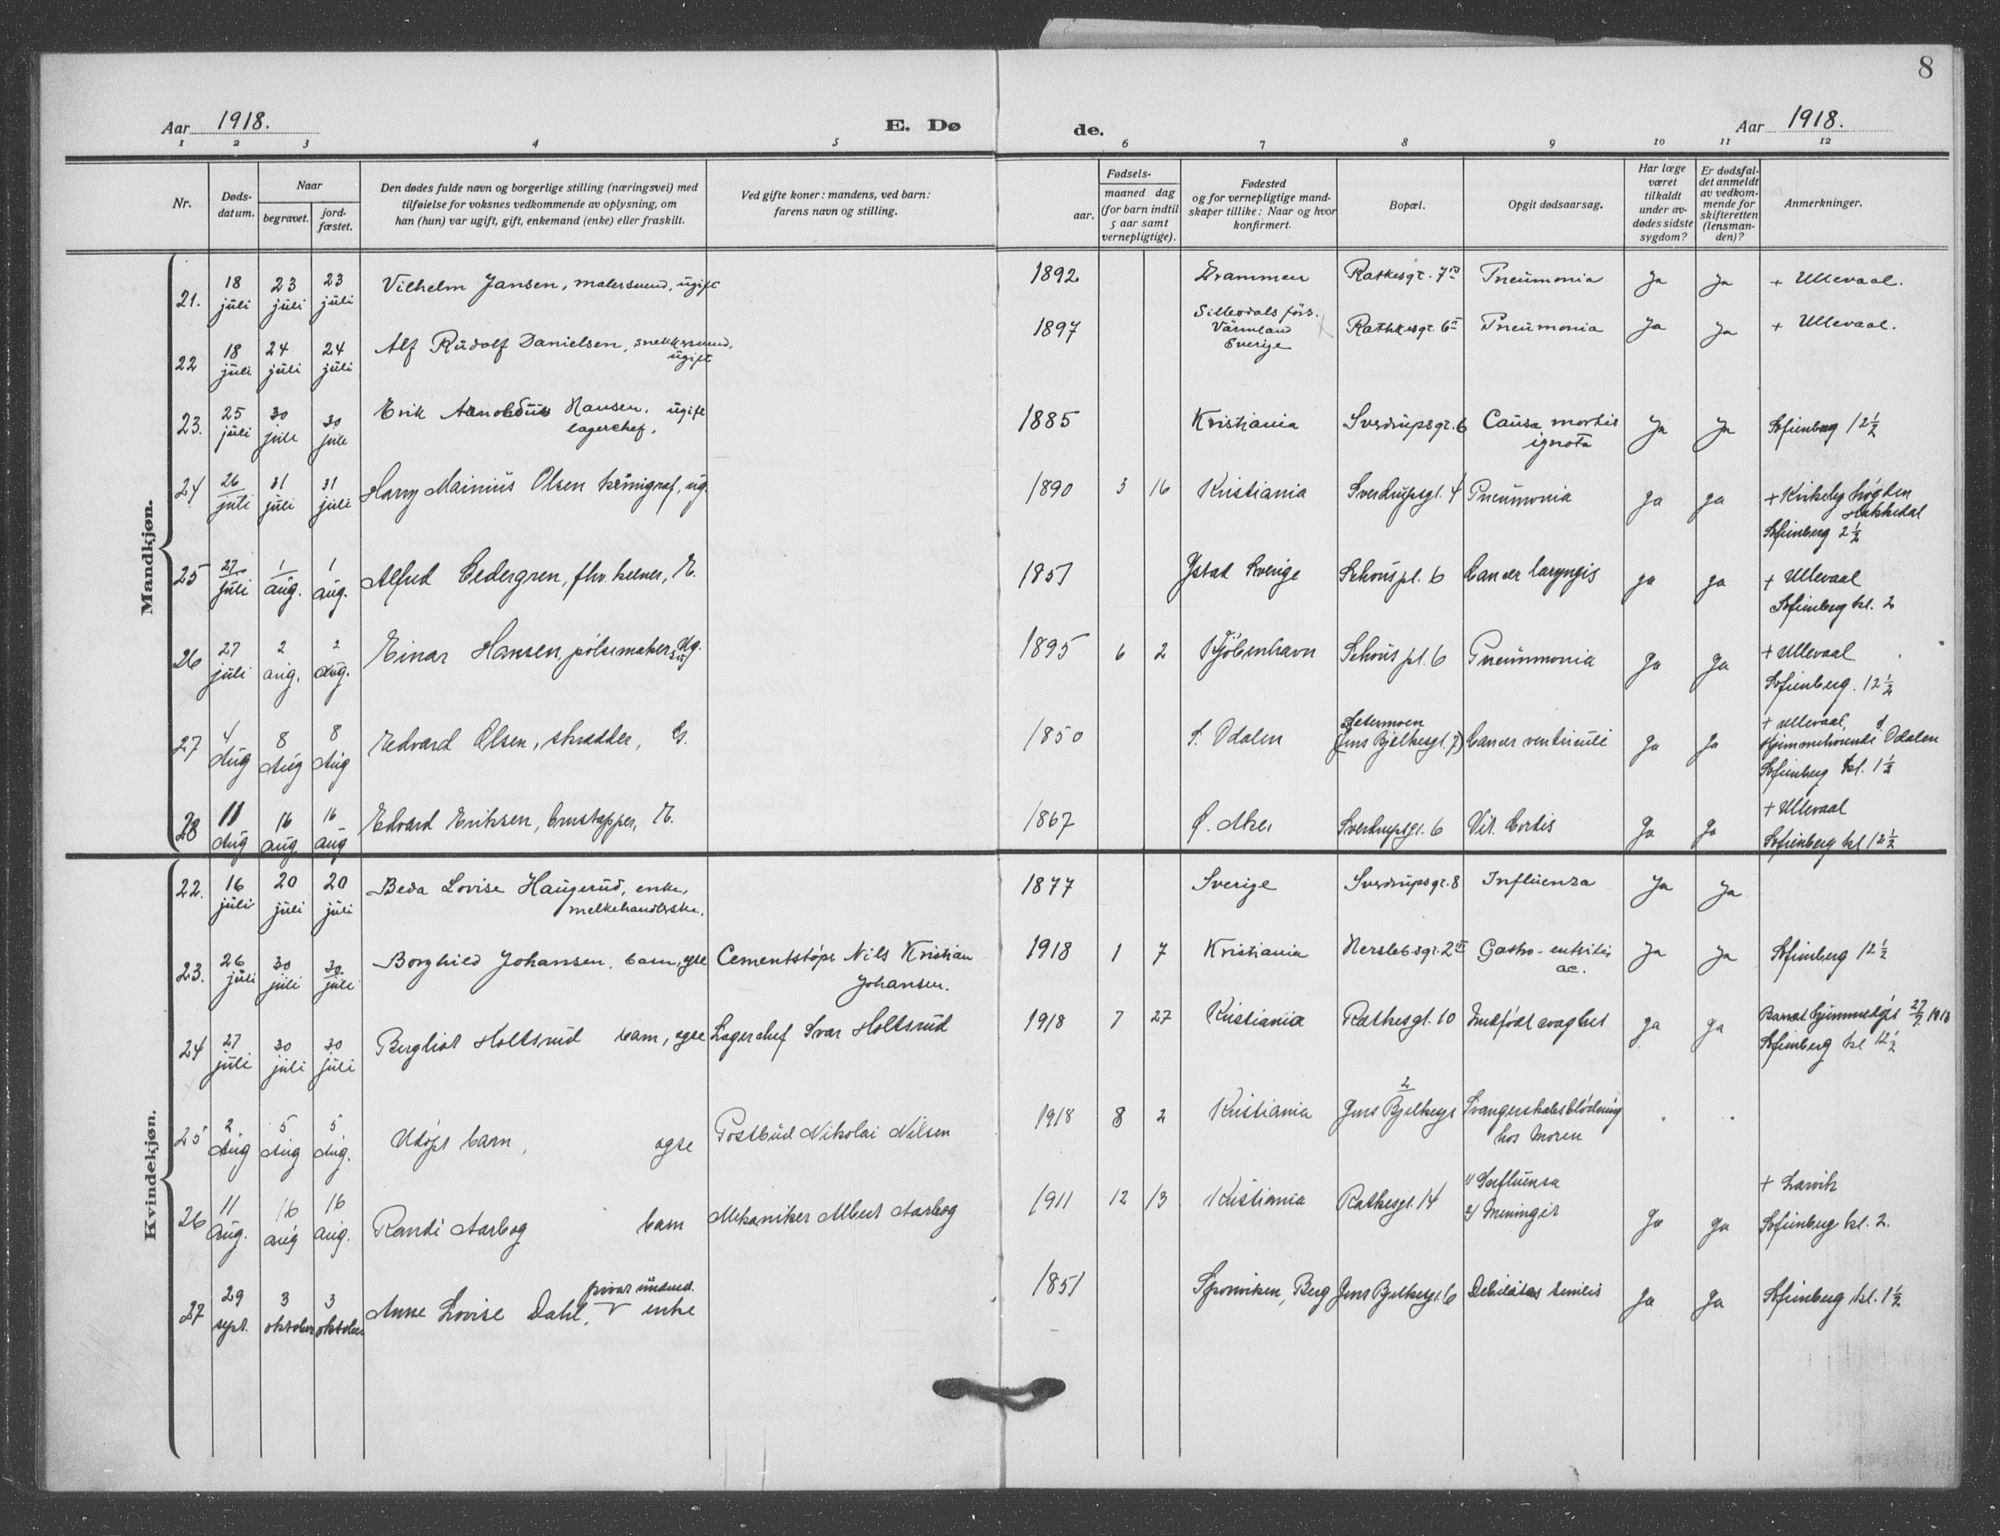 8
Aar 1918. E. Døde. Aar 1918.
1 2 3 4 5 6 7 8 9 10 11 12
Nr.
Dødsdatum.
Naar
begravet.
jordfæstet.
Den dødes fulde navn og borgerlige stilling (næringsvei) med
tilføielse for voksnes vedkommende av oplysning, om
han (hun) var ugift, gift, enkemand (enke) eller fraskilt.
Ved gifte koner: mandens, ved barn:
farens navn og stilling.
Fødsels-
aar.
maaned dag
(for barn indtil
5 aar samt
vernepligtige).
Fødested
og for vernepligtige mandskaper tillike: Naar og hvor
konfirmert.
Bopæl.
Opgit dødsaarsag.
Har læge
været
tilkaldt
under avdødes sidste
sygdom?
Er dødsfaldet anmeldt
av vedkommende for
skifteretten
(lensmanden)?
Anmerkninger.
Mandkjøn.
21. 18 juli 23 juli 23 juli Vilhelm Jansen, malersvend, ugift 1892 Drammen Rathkesgt. 7 Pneumonia Ja Ja + Ullevaal.
22 18 juli 24 juli 24 juli Alf Rudolf Danielsen, snekkersvend, ugift 1897 Värmland Sverige Rathkesgt. 6 Pneumonia Ja Ja + Ullevaal.
23. 25 juli 30 juli 30 juli Erik Arnoldus Hansen, ugift lagerchef. 1885 Kristiania Sverdrupsgt. 6 Causa mortis ignota Ja Ja Sofienberg 12½
24 26 juli 31 juli 31 juli Harry Mainius Olsen kemigraf, ug. 1890 3 16 Kristiania Sverdrupsgt. 4 Pneumonia Ja Ja + Hakkedal Sofienberg 2½
25 27 juli 1 aug. 1 aug. Alfred Cedergren, fhv. kelner, E. 1851 Ystad Sverige Schous pl. 6 Cancer laryngis Ja Ja + Ullevaal Sofienberg kl. 2
26 27 juli 2 aug. 2 aug. Einar Hansen, pølsemakersv. Ug. 1895 6 2 Kjöbenhavn Schous pl. 6 Pneumonia Ja Ja + Ullevaal Sofienberg. 12½
27 4 Aug 8 Aug 8 Aug Edvard Olsen, skrædder, G. 1850 S. Odalen Sætermoen (Jens Bjelkesgt. 7) Cancer ventriculi Ja Ja + Ullevaal, Hjemmehørende S. Odalen Sofienberg kl. 1½
28 11 Aug 16 aug 16 aug Edvard Eriksen, brustapper, E. 1867 Ø. Aker Sverdrupsgt. 6 Vit. Cordis Ja Ja + Ullevaal Sofienberg kl 12½
Kvindekjøn.
22. 16 juli 20 juli 20 juli Beda Lovise Haugerud, enke, melkehandlerske. 1877 Sverige Sverdrupsgt. 8 Influenza Ja Ja
23. 26 juli 30 juli 30 juli Borghild Johansen. barn, egte Cementstøper Nils Kristian Johansen. 1918 1 7 Kristiania Herslebsgt. 2 Gastro-enteritis ac. Ja Ja Sofienberg 12½
24 27 juli 30 juli 30 juli Bergliot Holtsrud barn, egte Lagerchef Ivar Holtsrud 1918 7 27 Kristiania Rathkesgt. 10 Medfödt svaghet Ja Ja Barnet hjemmedøpt 27/7 1918 Sofienberg kl 12½
25 2 Aug 5 Aug 5 Aug. Udöpt barn, egte Postbud Nikolai Nilsen 1918 8 2 Kristiania Jens Bjelkesgt 2 Svangerskabsblödning hos Moren
26 11 Aug. 16 aug 16 aug. Randi Aarbog barn Mekaniker Albert Aarbog 1911 12 13 Kristiania Rathkesgt. 14 1) Influensa 2) Meningit Ja Ja + Larvik Sofienberg kl. 2.
27 29 sept. 3 oktober 3 oktober Anne Lovise Dahl, privat underst. enke 1851 Sponviken, Berg Jens Bjelkesgt. 6 Debilitas senilis Ja Ja Sofienberg kl. 1½